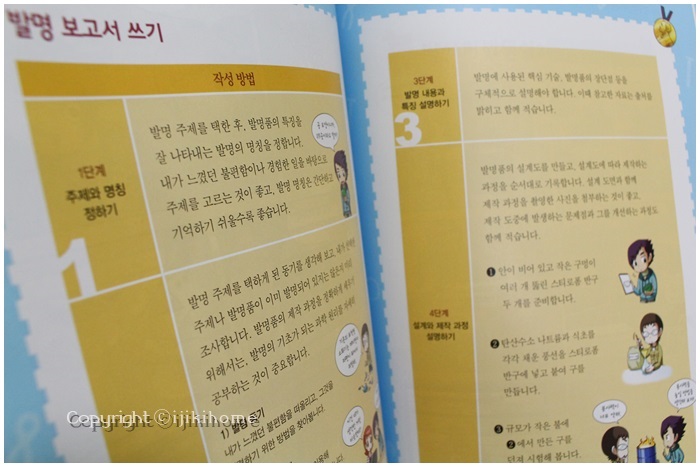 발명 보고서 쓰기
작성 방법
1단계
주제와 명칭
정하기
1
발명 주제를 택한 후, 발명품의 특징을
잘 나타내는 발명의 명칭을 정합니다.
내가 느꼈던 불편함이나 경험한 일을 바탕으로
주제를 고르는 것이 좋고, 발명 명칭은 간단하고
기억하기 쉬울수록 좋습니다.
발명 주제를 택하게 된 동기를 생각해 보고, 내가 선택한
주제나 발명품이 이미 발명되어 있지는 않은지 미리
조사합니다. 발명품의 제작 과정을 정확하게
위해서는, 발명의 기초가 되는 과학 원리를 자세히
공부하는 것이 중요합니다.
1) 발명 동기
내가 느꼈던 불편함을 떠올리고, 그것을
해결하기 위한 방법을 찾아봅니다.
3단계
발명 내용과
특징 설명하기
3
발명에 사용된 핵심 기술, 발명품의 장단점 등을
구체적으로 설명해야 합니다. 이때 참고한 자료는 출처를
밝히고 함께 적습니다.
4단계
설계와 제작 과정
설명하기
발명품의 설계도를 만들고, 설계도에 따라 제작하는
과정을 순서대로 기록합니다. 설계 도면과 함께
제작 과정을 촬영한 사진을 첨부하는 것이 좋고,
제작 도중에 발생하는 문제점과 그를 개선하는 과정도
함께 적습니다.
❶ 안이 비어 있고 작은 구멍이
여러 개 뚫린 스티로폼 반구
두 개를 준비합니다.
❷ 탄산수소 나트륨과 식초를
각각 채운 풍선을 스티로폼
반구에 넣고 붙여 구를
만듭니다.
❸ 규모가 작은 불에
❷에서 만든 구를
던져 시험해 봅니다.
Copyright ©ijikihome